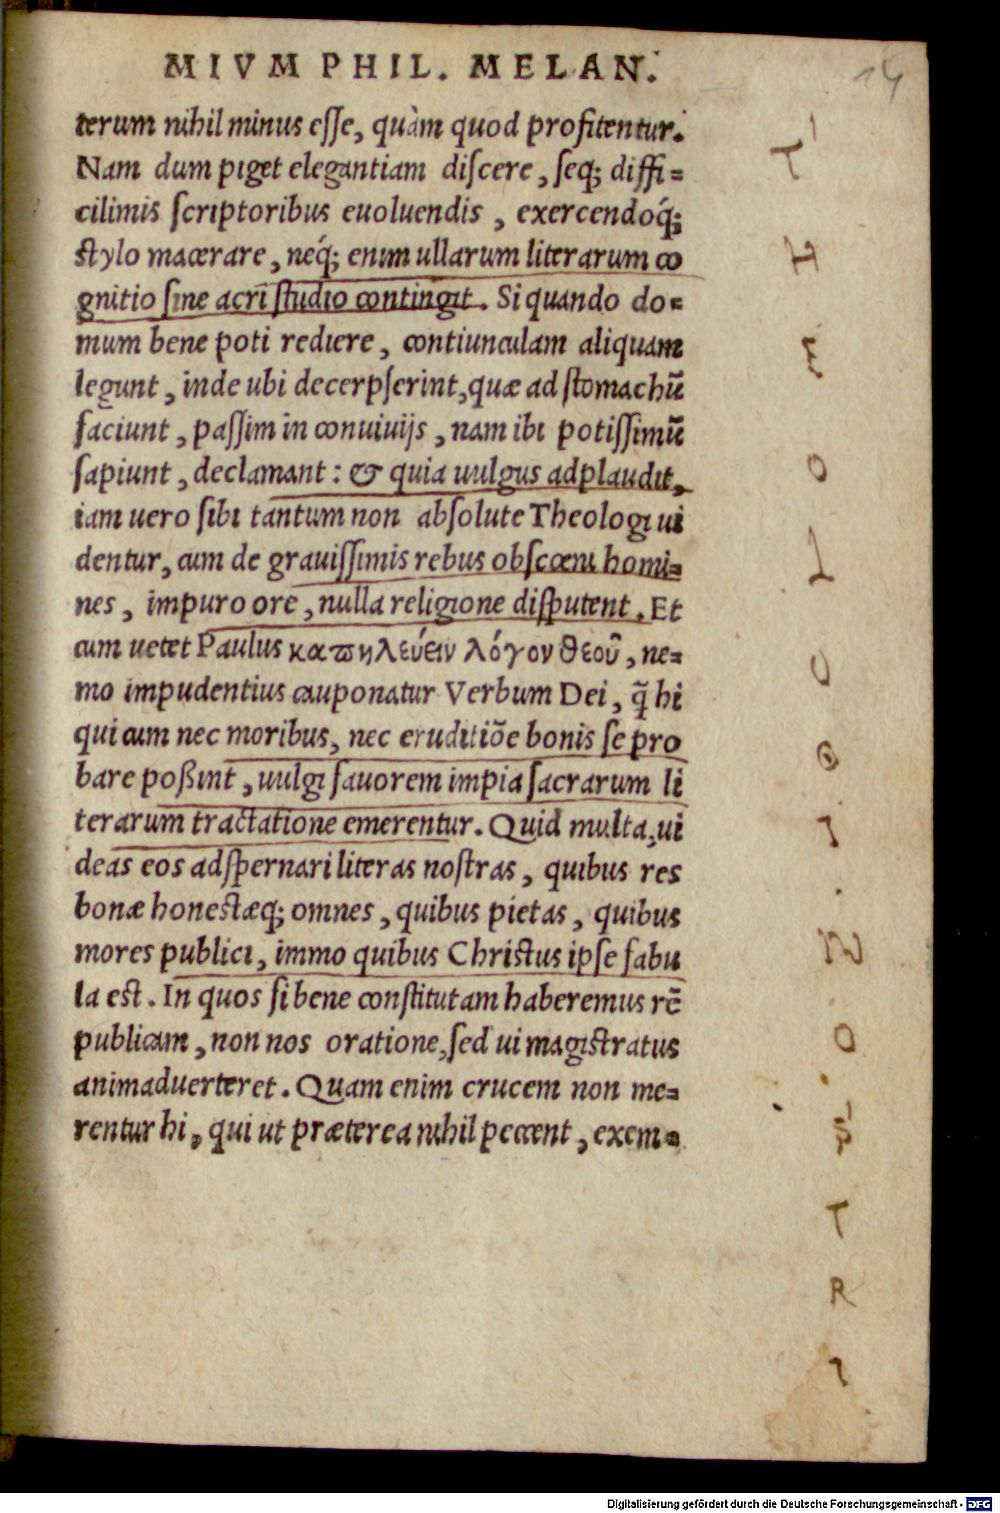 MIVM PHIL. MELAN.
14
terum nihil minus esse, quàm quod profitentur.
Nam dum piget elegantiam discere, seq; diffi=
cilimis scriptoribus euoluendis, exercendoq́;
stylo macerare, neq́; enim ullarum literarum co
gnitio sine acri studio contingit. Si quando do=
mum bene poti rediere, contiunculam aliquam
legunt, inde ubi decerpserint, quæ ad stomachū
faciunt, passim in conuiuijs, nam ibi potissimū
sapiunt, declamant: & quia uulgus adplaudit,
iam uero sibi tantum non absolute Theologi ui
dentur, cum de grauissimis rebus obscœni homi=
nes, impuro ore, nulla religione disputent. Et
cum uetet Paulus καπηλεύειν λόγον θεοῦ, ne=
mo impudentius cauponatur Verbum Dei, q̃ hi
qui cum nec moribus, nec eruditiõe bonis se pro
bare poßint, uulgi fauorem impia sacrarum li
terarum tractatione emerentur. Quid multa, ui
deas eos adspernari literas nostras, quibus res
bonæ honestæq; omnes, quibus pietas, quibus
mores publici, immo quibus Christus ipse fabu
la est. In quos si bene constitutam haberemus rē
publicam, non nos oratione, sed ui magistratus
animaduerteret. Quam enim crucem non me=
rentur hi, qui ut præterea nihil peccent, exem=
T
H
E
O
L
O
G
I
N
O
S
T
R
I
Digitalisierung gefördert durch die Deutsche Forschungsgemeinschaft - DFG